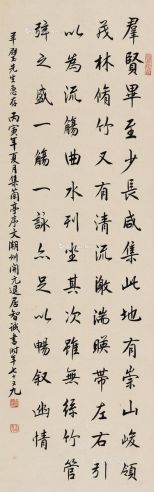 羣賢畢至少長咸集此地有崇山峻領
茂林脩竹又有清流激湍暎帶左右引
以為流觴曲水列坐其次雖無絲竹管
弦之盛一觴一詠亦足以暢叙幽情
先生惠存 丙寅年夏月集蘭亭序文湖州退居智誠書時年七十九